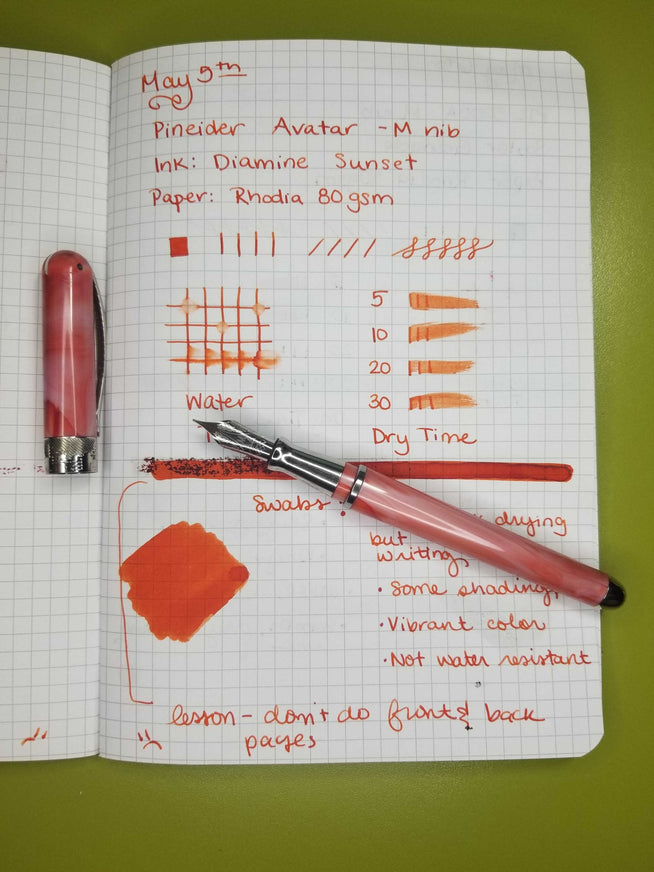 May 9th
Pineider Avatar - M nib
Ink: Diamine Sunset
Paper: Rhodia 80gsm
5
10
20
30
Water
Dry Time
Swabs
drying
but
writing
· Some shading
· Vibrant color
· Not water resistant
lesson - don't do front & back
pages